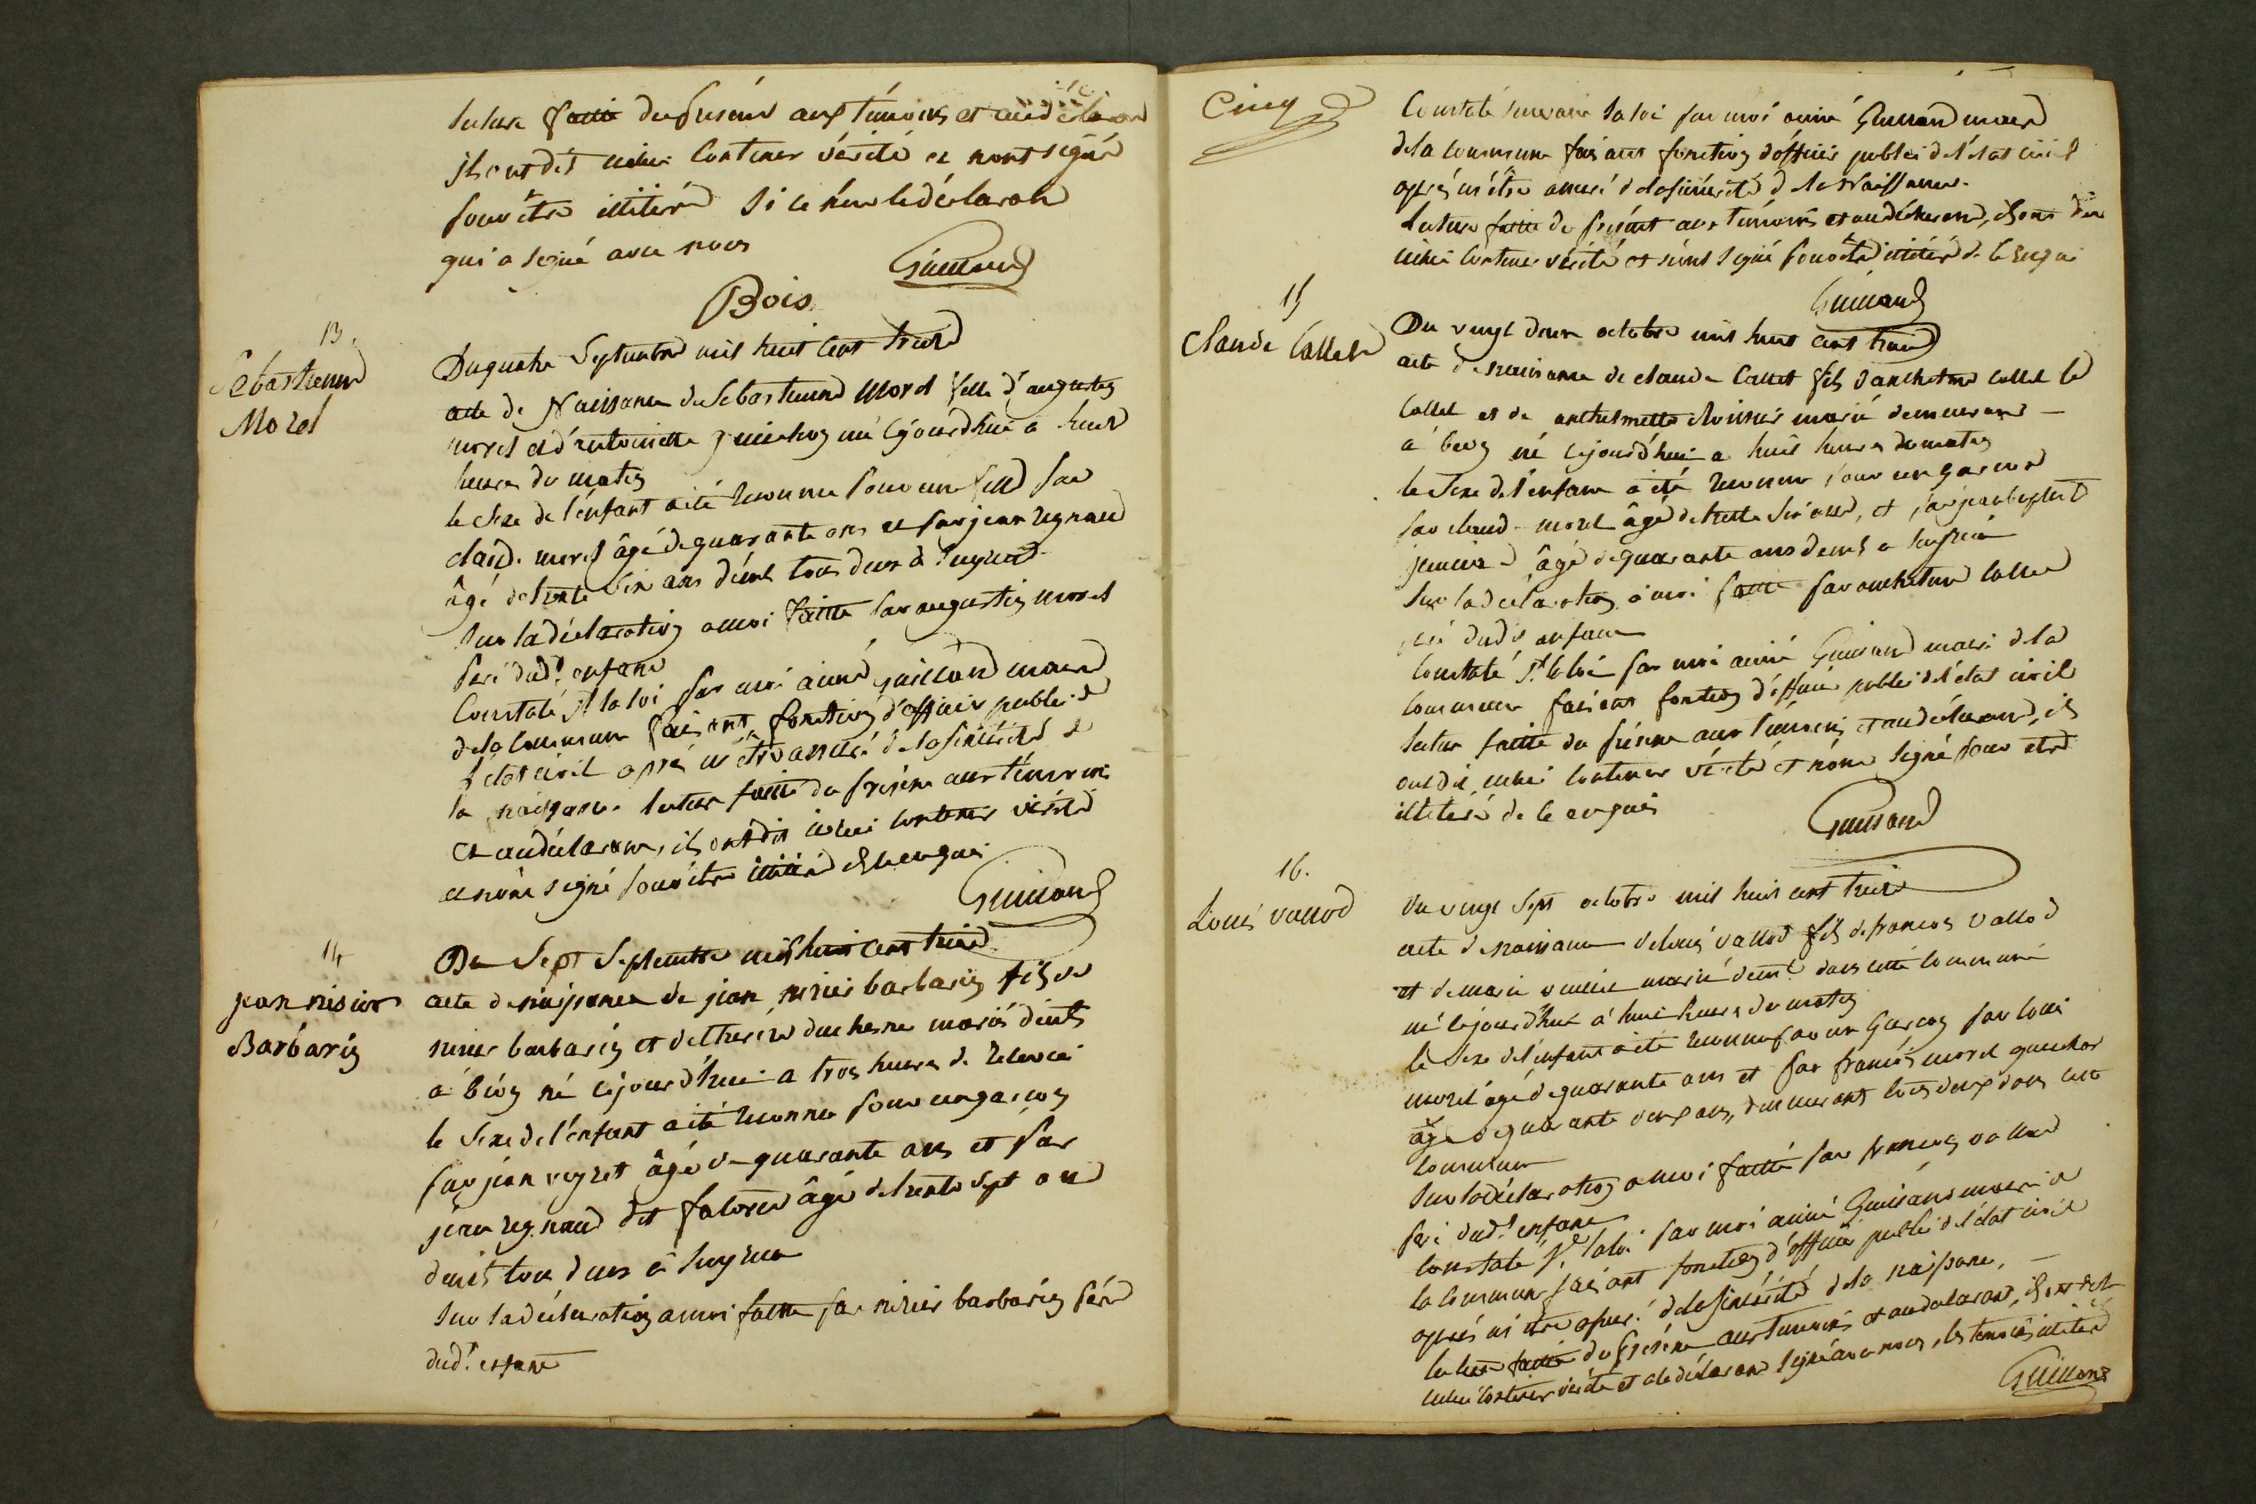 lecture faitte du présent aux témoins et au déclarant
ils ont dit icelui contenir vérité et n'ont signé
pour être illitéré si ce n'est le déclarant
qui a signé avec nous
Guilland
Bois
13.
Sebastienne
Morel
Du quatre Septembre mil huit cent treize
acte de Naissance de Sebastienne Morel fille d'augustin
morel et d'antoinette guichon né cejourd'hui a huit
heures du matin
le sexe de l'enfant a été reconnu pour une fille par
claude morel âgé de quarante ans et par jean regnaud
âgé de trente six ans dem.t tous deux à
sur la déclaration a moi faitte par augustin morel
père dud.t enfant
Constaté s.t la loi par moi aimé guilland maire
de la commune faisant fonction d'officier public de
l'état civil après m'être assuré de la sincérité de
la naissance lecture faitte du présent aux témoins
et au déclarant, ils ont dit icelui contenir vérité
et n'ont signé pour être illitéré de ce enquis
Guilland
14
jean nisier
Barbarin
Du Sept Septembre mil huit cent treize
acte de naissance de jean nisier barbarin fils de
nisier barbarin et de therèse duchesne mariés dem.ts
à béon né cejourd'hui a trois heures de relevée
le sexe de l'enfant a été reconnu pour un garçon
par jean veyret âgé de quarante ans et par
jean regnaud dit âgé de trente sept ans
dem.ts tous deux à
Sur la déclaration a moi faitte par nisier barbarin père
dud.t enfant
Cinq
Constaté suivant la loi par moi aimé Guilland maire
de la commune faisant fonction d'officier public de l'état civil
après m'être assuré de la sincérité de la Naissance.
Lecture faitte du présent aux témoins et au déclarant, ils ont dit
icelui contenir vérité et n'ont signé pour être illitéré de ce enquis
Guilland
15
Claude Callet
Du vingt deux octobre mil huit cent treize
acte de naissance de claude Callet fils d'anthelme callet
Callet et de anthelmette mariés demeurant
à béon né cejourd'hui a huit heures du matin
le sexe de l'enfant a été reconnu pour un garçon
par claude morel âgé de trente six ans, et par jean baptiste
âgé de quarante ans dem.ts a
Sur la déclaration à moi faitte par anthelme callet
père dudit enfant
Constaté s.t la loi par moi aimé Guilland maire de la
commune faisant fonction d'officier public de l'état civil
lecture faitte du présent aux témoins et au déclarant, ils
ont dit icelui contenir vérité et n'ont signé pour être
illitéré de ce enquis
Guilland
16.
Louis vallod
Du vingt sept octobre mil huit cent treize
acte de naissance de louis vallod fils de francois vallod
et de marie mariés dem.t dans cette commune
né cejourd'hui à huit heures du matin
le sexe de l'enfant a été reconnu pour un Garçon par louis
morel âgé de quarante ans et par francois morel guichon
âgé de quarante deux ans, demeurant tous deux dans cette
commune
Sur la déclaration a moi faitte par francois vallod
père dud.t enfant
Constaté s.t la loi par moi aimé Guilland maire de
la commune faisant fonction d'officier public de l'état civil
après m'être assuré de la sincérité de la naissance,
lecture faitte du présent aux témoins et au déclarant, ils ont dit
icelui contenir vérité et le déclarant signé avec nous, les témoins illitéré
Guilland